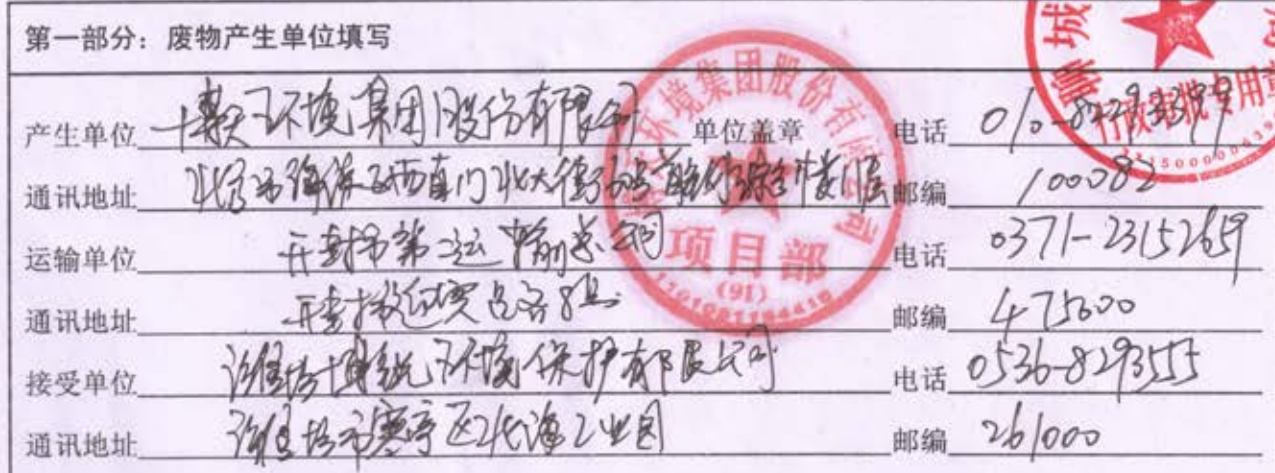 第一部分：废物产生单位填写
产生单位 博天环境集团股份有限公司 单位盖章 电话 010-82293399
通讯地址 北京市海淀区西直门北大街 邮编 100082
运输单位 开封市第二运输总公司 电话 0371-23152659
通讯地址 开封 邮编 475000
接受单位 潍坊博锐环境保护有限公司 电话 0536-8293555
通讯地址 潍坊市寒亭区北海工业园 邮编 261000
环境集团股份有限公司
项目部
(91)
行政审批专用章